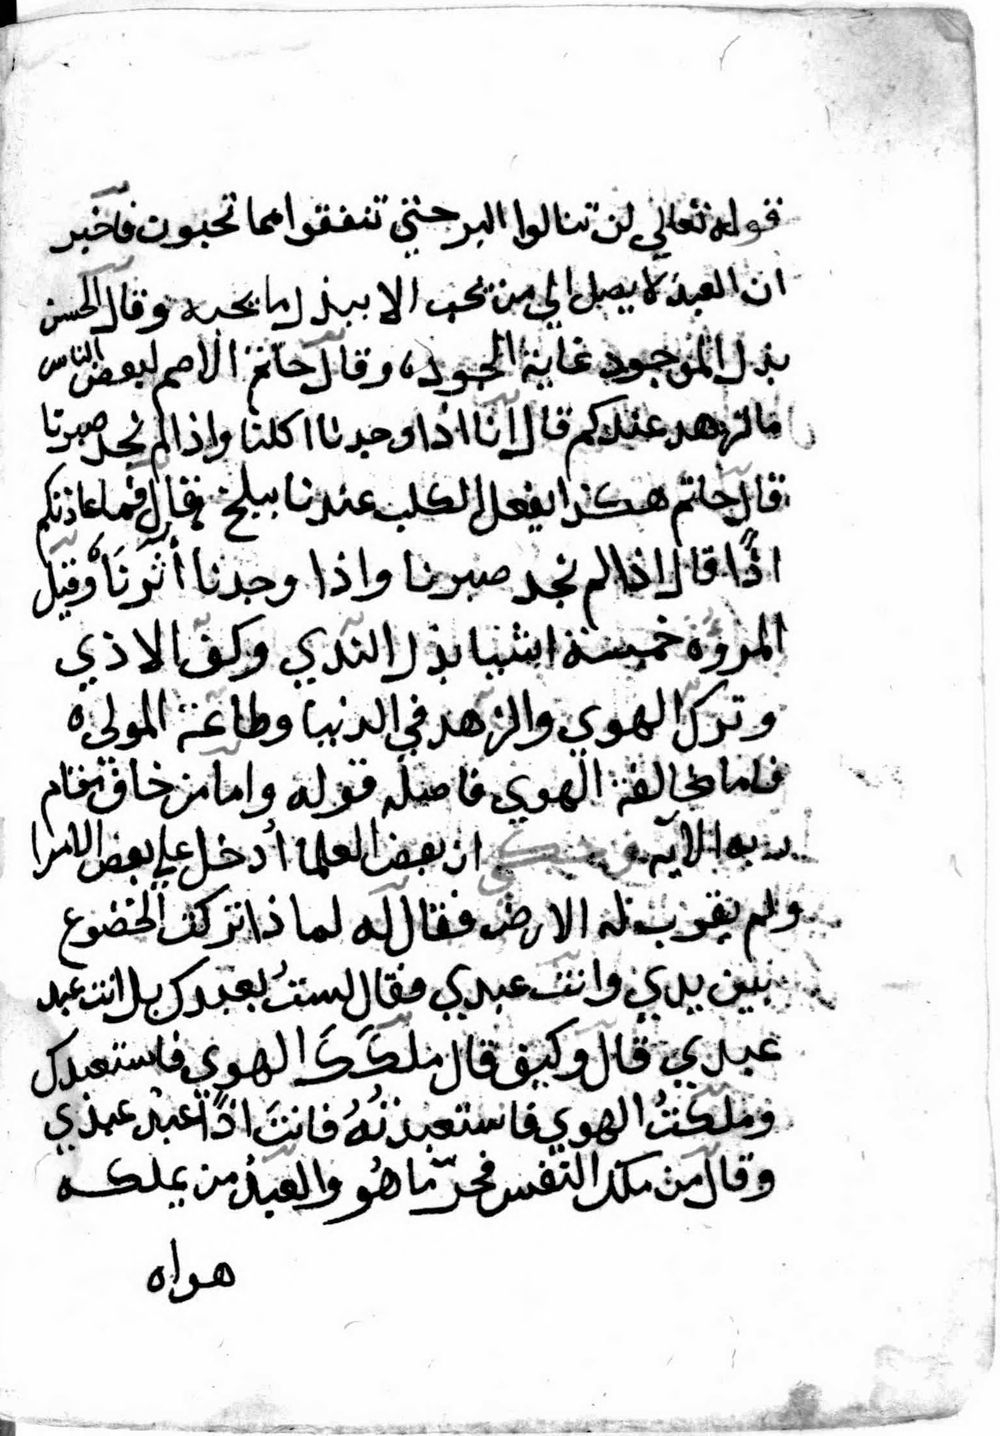 قوله تعالي لن تنالوا البر حتي تنفقوا مما تحبون فاخبر
ان العبد لا يصل الي من يحب الا ببذل ما يحبه وقال الحسن
بذل الموجود غاية الجود، وقال حاتم الاصم لبعض الناس
ما الزهد عندكم قال انا اذا وجدنا اكلنا واذا لم نجد صبرنا
قال حاتم هكذا يفعل الكلب عندنا ببلخ فقال فما عادتكم
اذًا قال اذا لم نجد صبرنا واذا وجدنا أثرنَا وقيل
المروة خمسة اشيا بذل الندي وكف الاذي
وترك الهوي والزهد في الدنيا وطاعة المولي ه
فاما مخالفة الهوي فاصله قوله واما من خاف مقام
ربه الايه وحكي ان بعض العلما أدخل علي بعض الامرا
ولم يقرب له الارض فقال له لماذا تركت الخضوع
بين يدي وانت عبدي فقال لستُ بعبدك بل انت عبد
عبدي قال وكيف قال ملكَكَ الهوي فاستعبدك
وملكتُ الهوي فاستعبدتُهُ فانتَ اذًا عبد عبدي
وقال من ملك النفس فحرّ ما هُو والعبدُ من يملكه
هواه